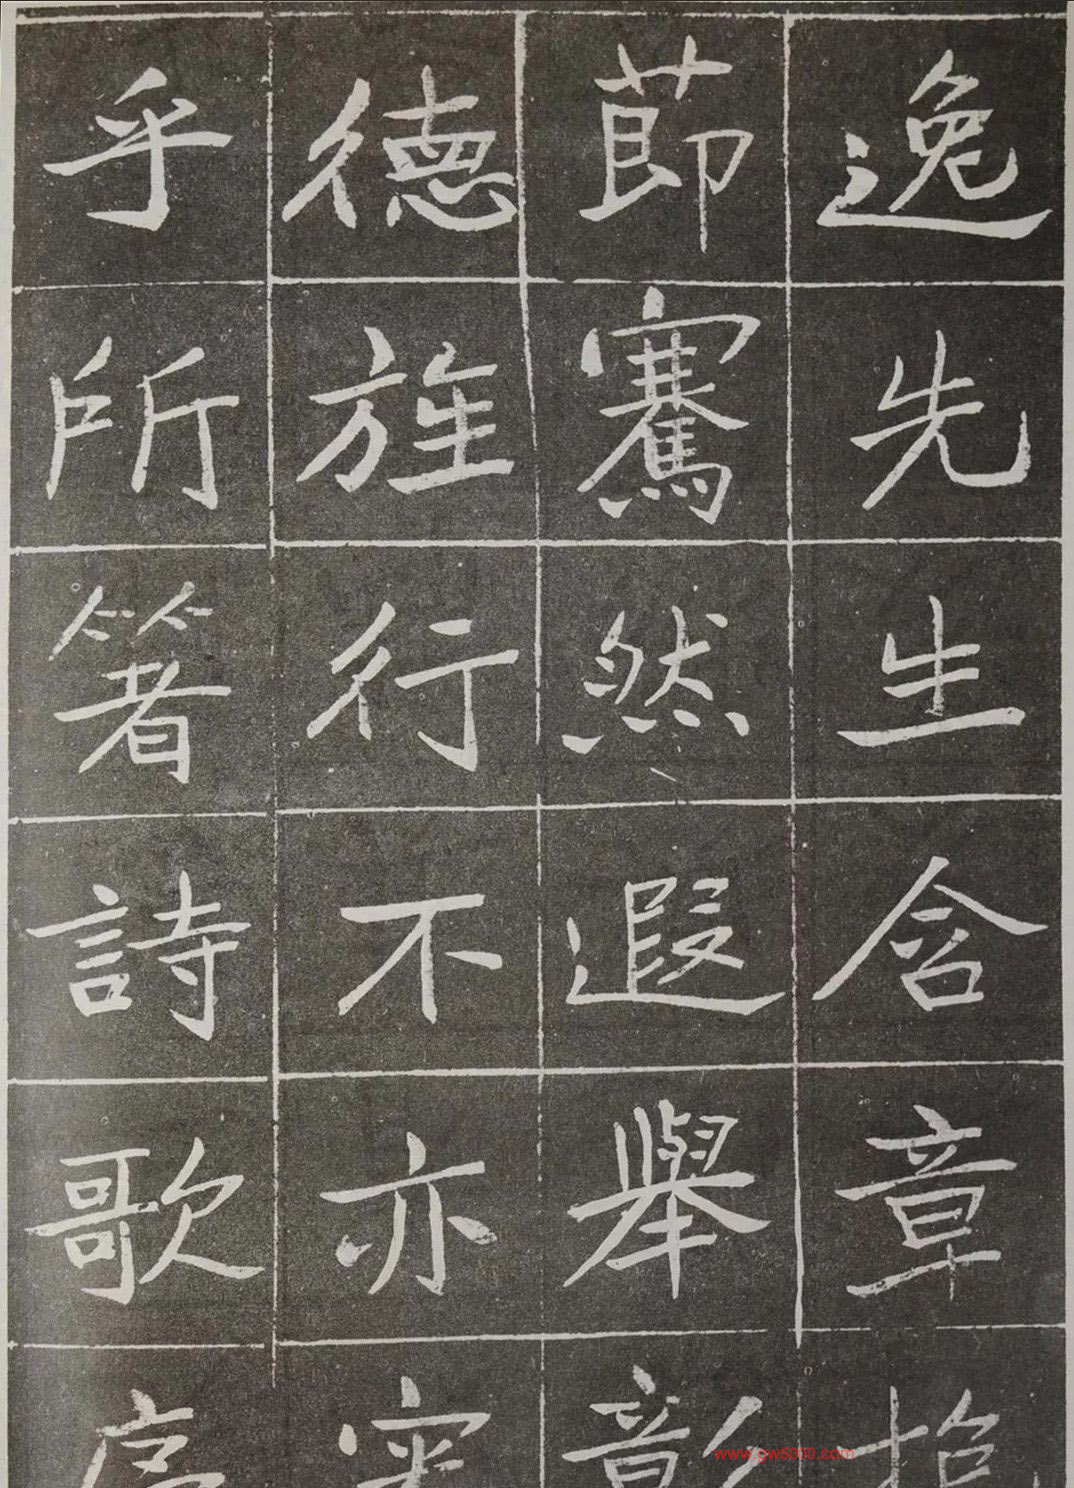 逸先生含章抱
節騫然遐舉彰
德旌行不亦宜
乎所箸詩歌序
www.gw5000.com